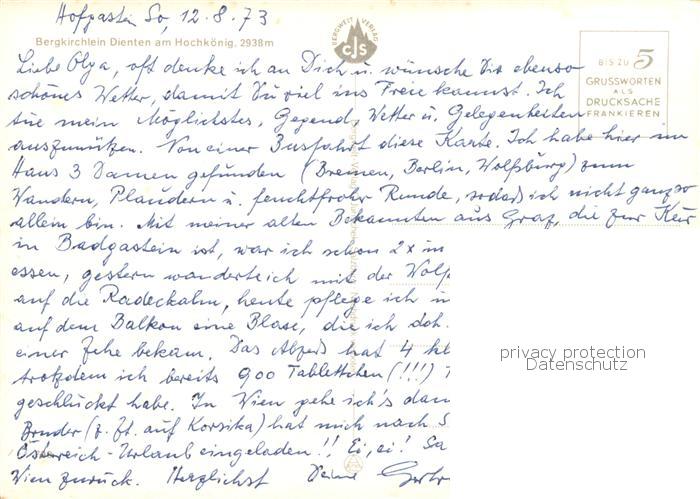 Hofgastein So, 12.8.73
BERGWELT VERLAG
cJs
Bergkirchlein Dienten am Hochkönig, 2938m
BIS ZU 5
GRUSSWORTEN
ALS
DRUCKSACHE
FRANKIEREN
Liebe Olga, oft denke ich an Dich u. wünsche Dir ebenso
schönes Wetter, damit Du viel ins Freie kannst. Ich
tue mein Möglichstes, Gegend, Wetter u. Gelegenheiten
auszunützen. Von einer Busfahrt diese Karte. Ich habe hier im
Haus 3 Damen gefunden (Bremen, Berlin, Wolfsburg) zum
Wandern, Plaudern u. feuchtfroher Runde, sodaß ich nicht ganz so
allein bin. Mit meiner alten Bekannten aus Graz, die zur Kur
in Badgastein ist, war ich schon 2x im
essen, gestern wanderte ich mit der Wolf
auf die
auf dem Balkon eine Blase, die ich
einer Zehe bekam. Das hat 4
trotzdem ich bereits 900 Tablettchen (!!!)
geschluckt habe. In Wien gehe ich's dann
Bruder (z. Zt. auf Korsika) hat mich nach
Österreich-Urlaub eingeladen!! Ei, ei!
Wien zurück. Herzlichst Deine
privacy protection
Datenschutz